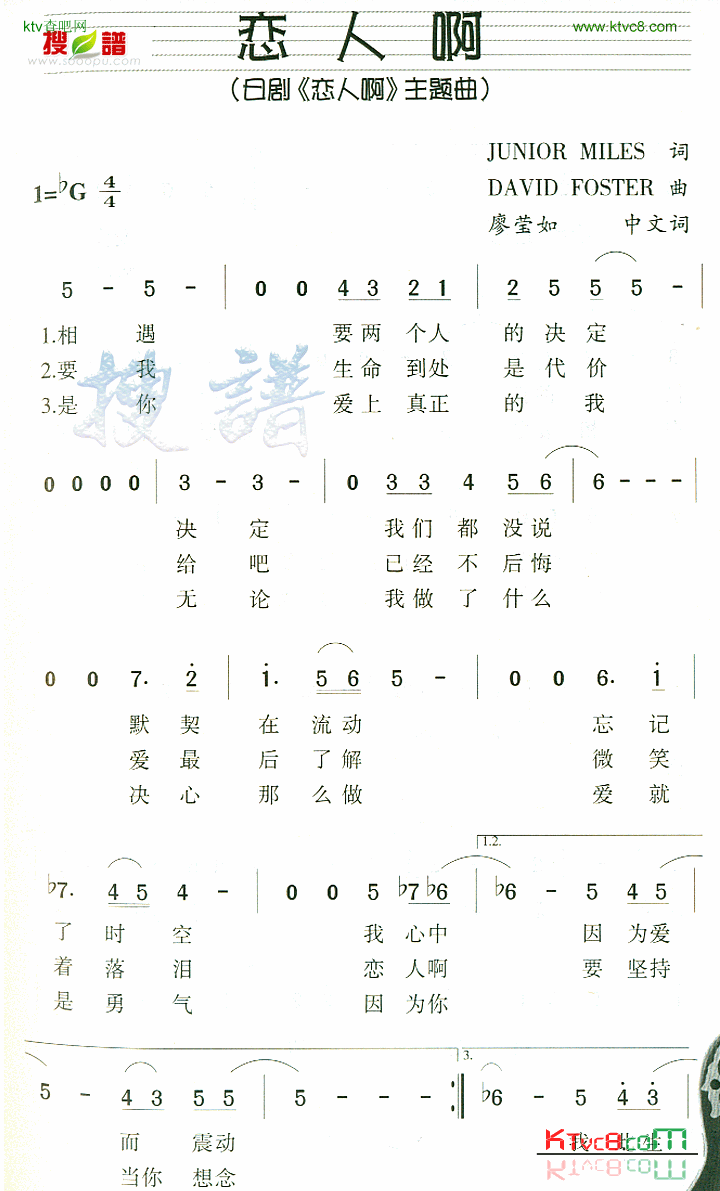 ktv查吧网
搜譜
www.sooopu.com
www.ktvc8.com
恋人啊
（日剧《恋人啊》主题曲）
JUNIOR MILES 词
DAVID FOSTER 曲
廖莹如 中文词
1=♭G 4/4
5 - 5 - | 0 0 4 3 2 1 | 2 5 5 5 - |
1.相 遇 要 两 个 人 的 决 定
2.要 我 生 命 到 处 是 代 价
3.是 你 爱 上 真 正 的 我
搜譜
0 0 0 0 | 3 - 3 - | 0 3 3 4 5 6 | 6 - - - |
决 定 我 们 都 没 说
给 吧 已 经 不 后 悔
无 论 我 做 了 什 么
0 0 7. 2̇ | 1̇. 5 6 5 - | 0 0 6. 1̇ |
默 契 在 流 动 忘 记
爱 最 后 了 解 微 笑
决 心 那 么 做 爱 就
1.2.
♭7. 4 5 4 - | 0 0 5 ♭7 ♭6 | ♭6 - 5 4 5 |
了 时 空 我 心 中 因 为 爱
着 落 泪 恋 人 啊 要 坚 持
是 勇 气 因 为 你
3.
5 - 4 3 5 5 | 5 - - :‖ ♭6 - 5 4̇ 3̇ |
而 震 动 我 此 生
当 你 想 念
KTvc8coM